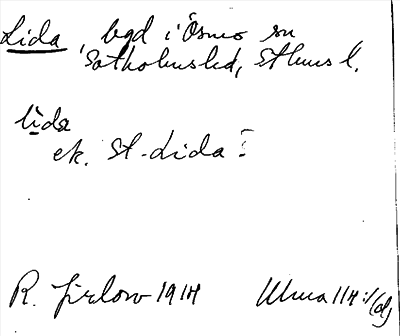 Lida, bgd i Ösmo sn
Sotholms hd, Sthms l.
lida
ek. St. Lida
R. Jirlow 1914 Ulma 114:1